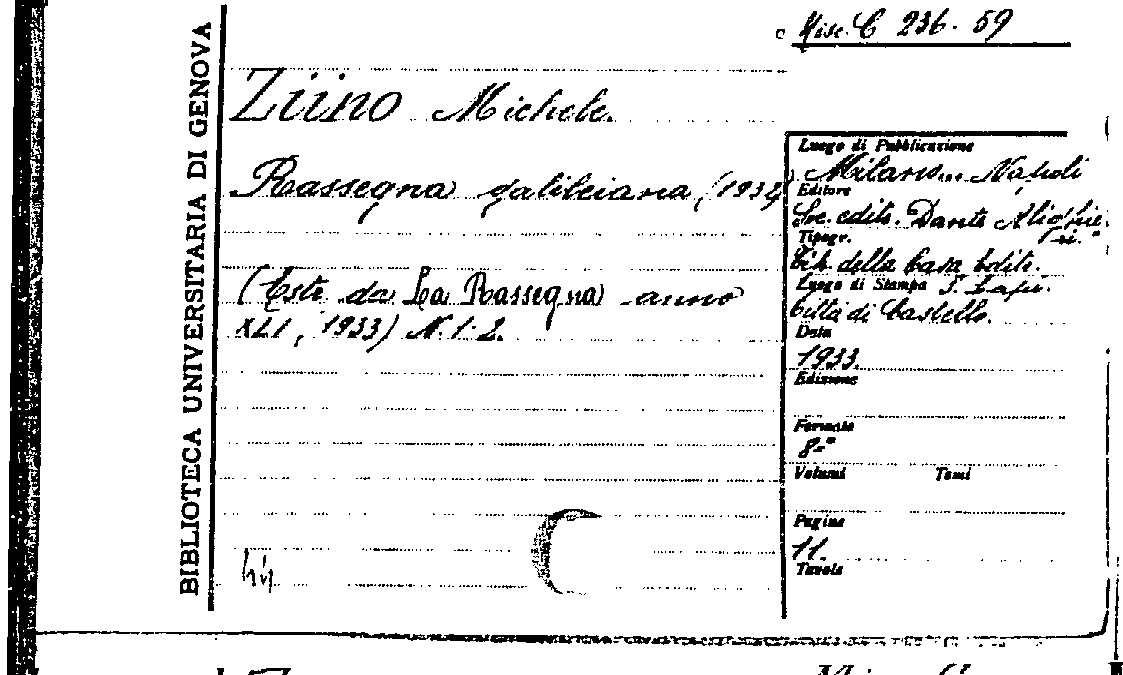 Misc. C 236. 59
BIBLIOTECA UNIVERSITARIA DI GENOVA
Ziino Michele.
Rassegna galileiana, (1932)
(Estr. da La Rassegna anno
XLI, 1933) N. 1-2.
Luogo di Pubblicazione
Milano... Napoli
Editore
Soc. edit. Dante Alighie-
ri."
Tipogr.
Tip. della Casa Editr.
Luogo di Stampa S. Lapi.
Città di Castello.
Data
1933.
Edizione
Formato
8-°
Volumi Tomi
Pagine
11.
Tavole